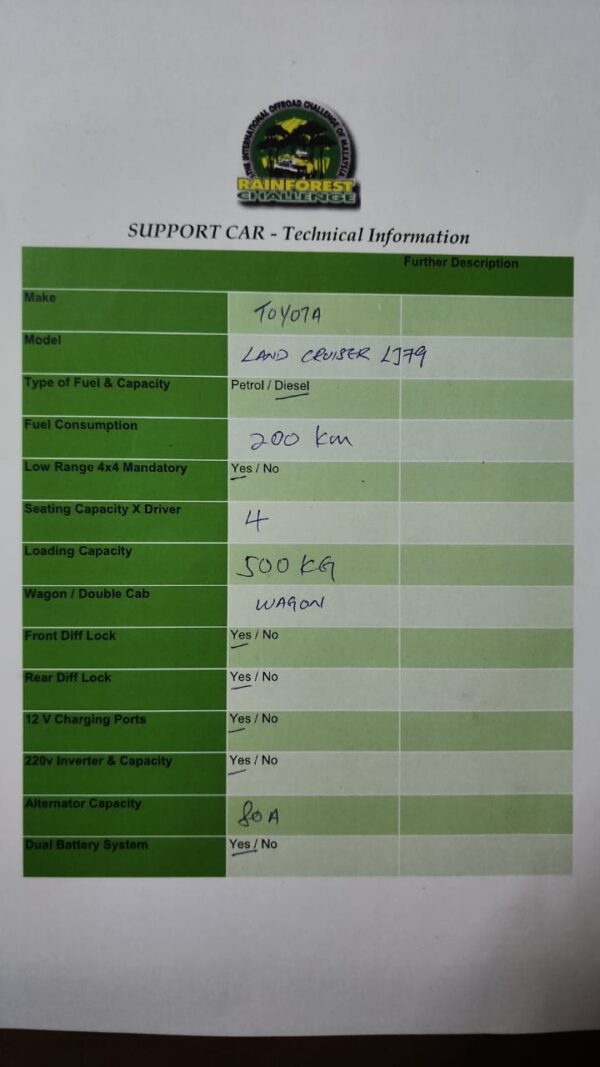 THE INTERNATIONAL OFFROAD CHALLENGE OF MALAYSIA
RAINFOREST
CHALLENGE
SUPPORT CAR - Technical Information
Further Description
Make TOYOTA
Model LAND CRUISER LJ79
Type of Fuel & Capacity Petrol / Diesel
Fuel Consumption 200 km
Low Range 4x4 Mandatory Yes / No
Seating Capacity X Driver 4
Loading Capacity 500 KG
Wagon / Double Cab WAGON
Front Diff Lock Yes / No
Rear Diff Lock Yes / No
12 V Charging Ports Yes / No
220v Inverter & Capacity Yes / No
Alternator Capacity 80A
Dual Battery System Yes / No